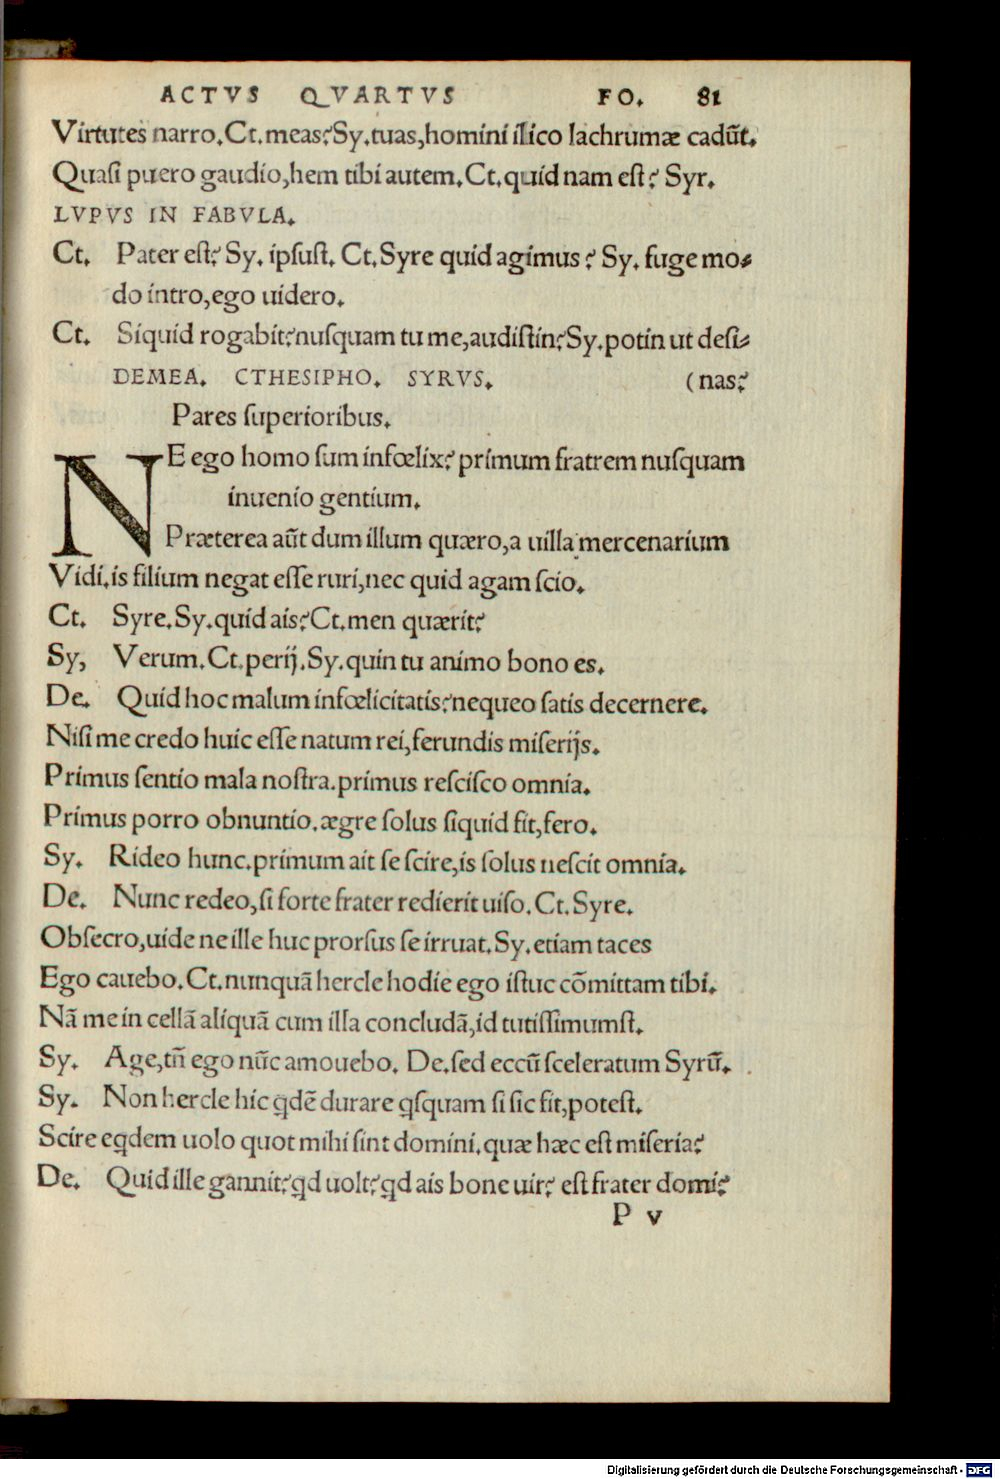 ACTVS QVARTVS FO. 81
Virtutes narro. Ct. meas? Sy. tuas, homini ilico lachrumæ cadūt.
Quasi puero gaudio, hem tibi autem. Ct. quid nam est? Syr.
LVPVS IN FABVLA.
Ct. Pater est? Sy. ipsust. Ct. Syre quid agimus? Sy. fuge mo-
do intro, ego uidero.
Ct. Siquid rogabit? nusquam tu me, audistin? Sy. potin ut desi-
DEMEA. CTHESIPHO. SYRVS. (nas?
Pares superioribus.
NE ego homo sum infœlix? primum fratrem nusquam
inuenio gentium.
Præterea aūt dum illum quæro, a uilla mercenarium
Vidi. is filium negat esse ruri, nec quid agam scio.
Ct. Syre. Sy. quid ais? Ct. men quærit?
Sy, Verum. Ct. perij. Sy. quin tu animo bono es.
De. Quid hoc malum infœlicitatis? nequeo satis decernere.
Nisi me credo huic esse natum rei, ferundis miserijs.
Primus sentio mala nostra. primus rescisco omnia.
Primus porro obnuntio. ægre solus siquid fit, fero.
Sy. Rideo hunc. primum ait se scire, is solus nescit omnia.
De. Nunc redeo, si forte frater redierit uiso. Ct. Syre.
Obsecro, uide ne ille huc prorsus se irruat. Sy. etiam taces
Ego cauebo. Ct. nunquā hercle hodie ego istuc cōmittam tibi.
Nā me in cellā aliquā cum illa concludā, id tutissimumst.
Sy. Age, tñ ego nūc amouebo. De. sed eccū sceleratum Syrū.
Sy. Non hercle hic q̃dē durare q̃squam si sic fit, potest.
Scire eq̃dem uolo quot mihi sint domini. quæ hæc est miseria?
De. Quid ille gannit? q̃d uolt? q̃d ais bone uir? est frater domi?
P v
Digitalisierung gefördert durch die Deutsche Forschungsgemeinschaft - DFG